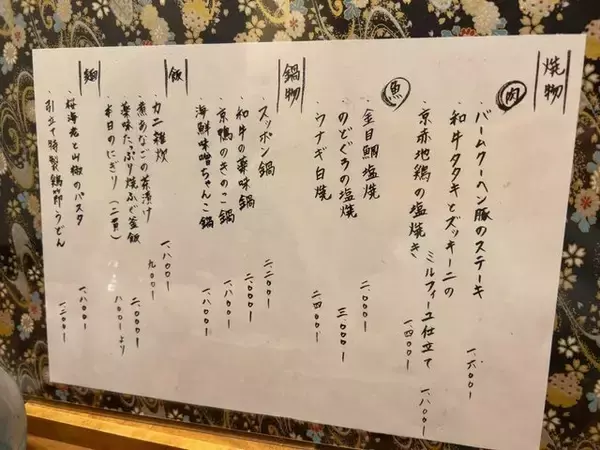 焼物
肉
・バームクーヘン豚のステーキ 一、六〇〇ー
・和牛タタキとズッキーニの
ミルフィーユ仕立て 一、八〇〇ー
・京赤地鶏の塩焼き 一、四〇〇ー
魚
・金目鯛塩焼 二、〇〇〇ー
・のどぐろの塩焼 三、〇〇〇ー
・ウナギ白焼 二、四〇〇ー
鍋物
・スッポン鍋 二、二〇〇ー
・和牛の薬味鍋 二、〇〇〇ー
・京鴨のきのこ鍋 一、八〇〇ー
・海鮮味噌ちゃんこ鍋 一、八〇〇ー
飯
・カニ雑炊 一、八〇〇ー
・煮あなごの茶漬け 九〇〇ー
・薬味たっぷり焼ふぐ釜飯 二、〇〇〇ー
・本日のにぎり(二貫) 八〇〇ーより
麺
・桜海老と山椒のパスタ 一、八〇〇ー
・引立て特製鶏節うどん 一、二〇〇ー